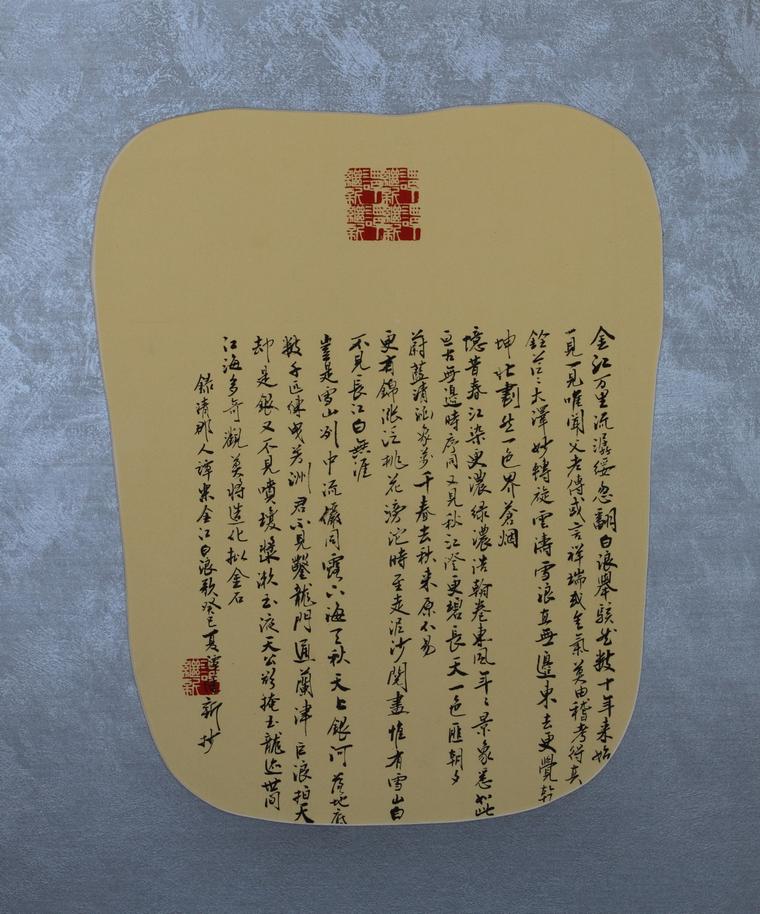 金江万里流潺缓忽翻白浪舉駭然數十年来始
一見一見唯聞父老傳或言祥瑞或金氣莫由稽考得真
銓茫〻大澤妙轉旋雪濤雪浪直無邊東去更覺乾
坤牝劃然一色界蒼烟
憶昔春江染更濃綠濃浩翰卷東風年〻景象悉如此
亘古無邊時序同又見秋江澄更碧長天一色匯朝夕
蔚藍清泚象萬千春去秋来原不易
更有錦漲泛桃花滂沱時至走泥沙閱盡惟有雪山白
不見長江白無涯
豈是雪山冽中流儼同雲下海天秋天上銀河落地底
數千匹練曳芳洲君不見鑿龍門通蘭津巨浪拍天
却是銀又不見噴瓊漿漱玉液天公欲掩玉龍迹世間
江海多奇觀莫將造化擬金石
錄清郡人譚 金江白浪歌癸巳夏譚 新抄